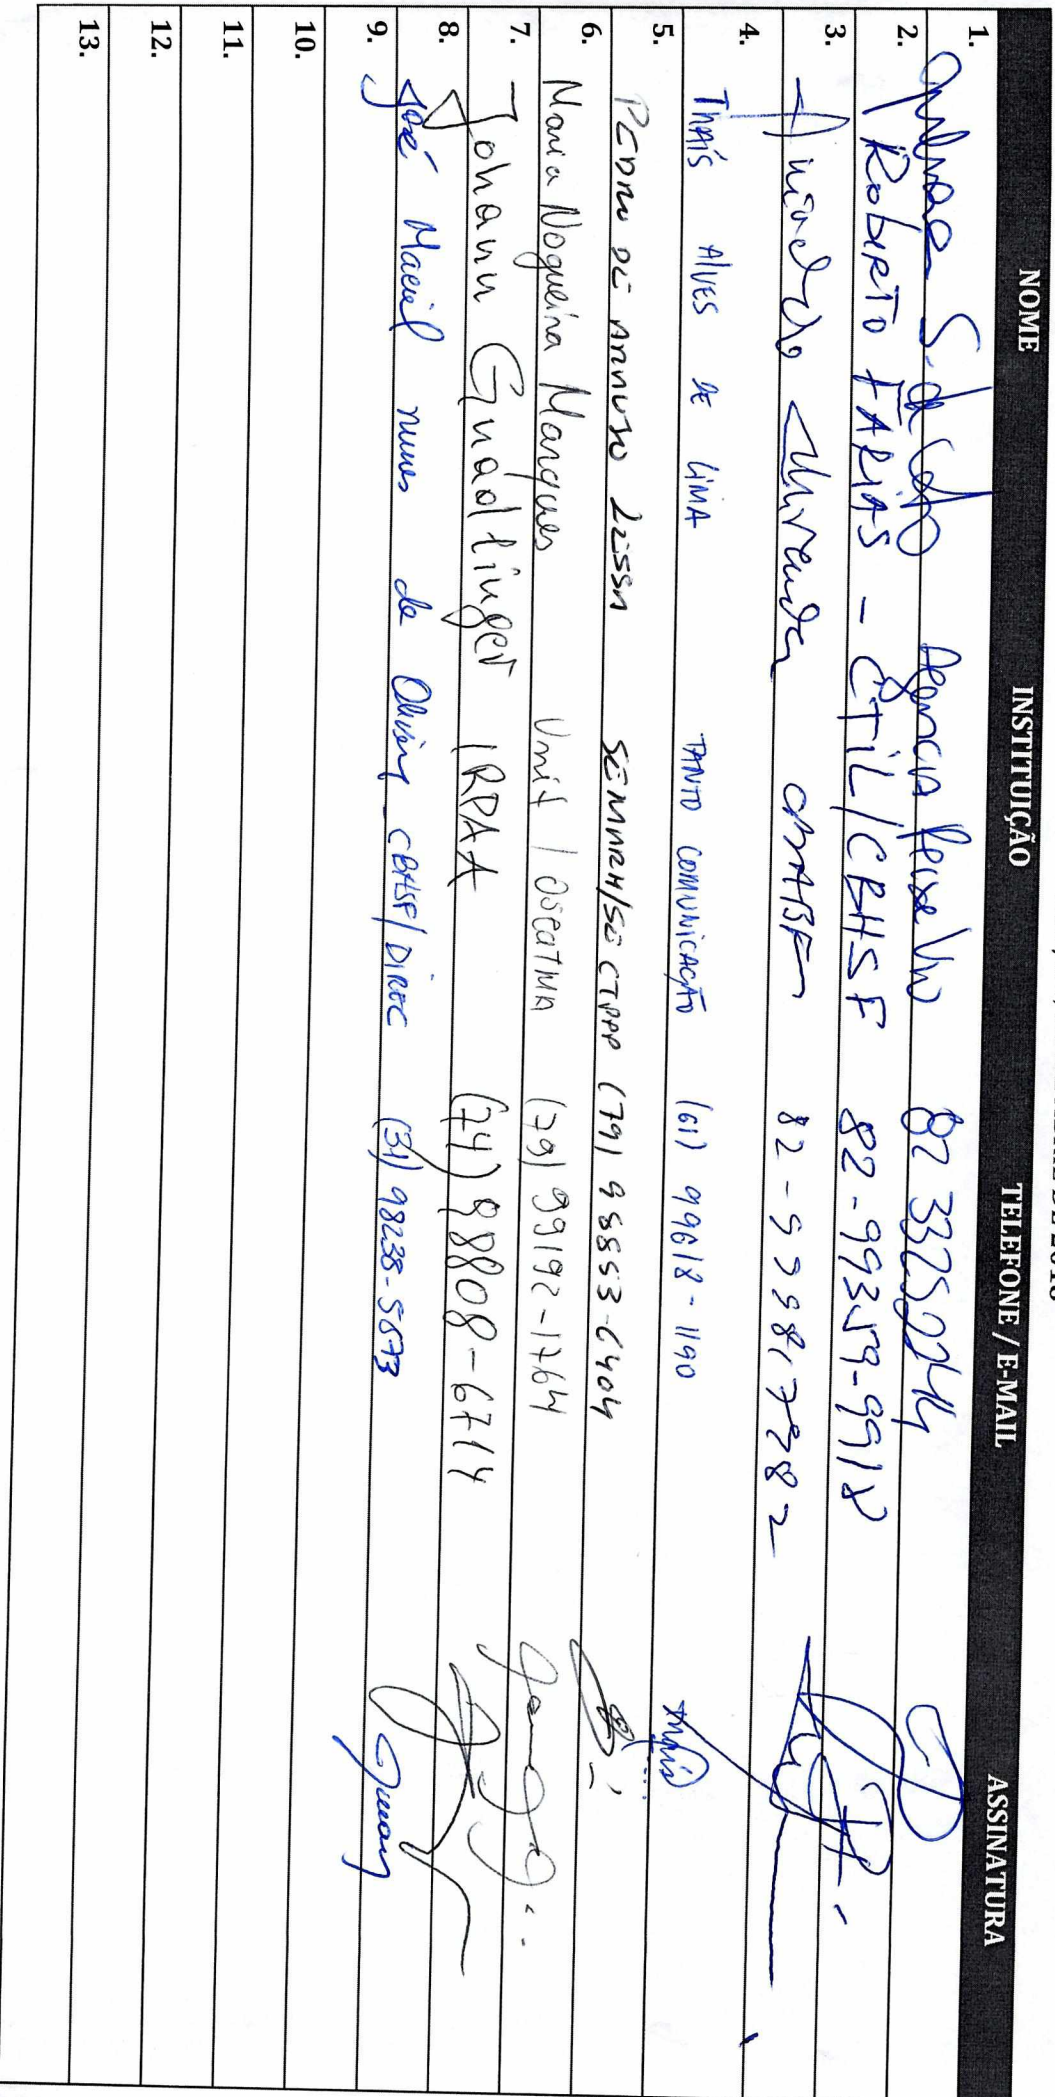 NOME INSTITUIÇÃO TELEFONE / E-MAIL ASSINATURA
1. S. da Agência Peixe Vivo 82 33259244
2. ROBERTO FARIAS - CTIL/CBHSF 82-99359-9918
3. 82-
4. THAÍS ALVES DE LIMA TANTO COMUNICAÇÃO (61) 99618-1190 Thaís
5. PEDRO DE ARAUJO LESSA SEMARH/SE CTPPP (79) 98853-6404
6. Maria Nogueira Marques Unit / OSCATMA (79) 99192-1764
7. Johann Gnadlinger IRPAA (74) 98808-6714
8. José Maciel nunes de Oliveira CBHSF/DIREC (31) 98238-5873
9.
10.
11.
12.
13.